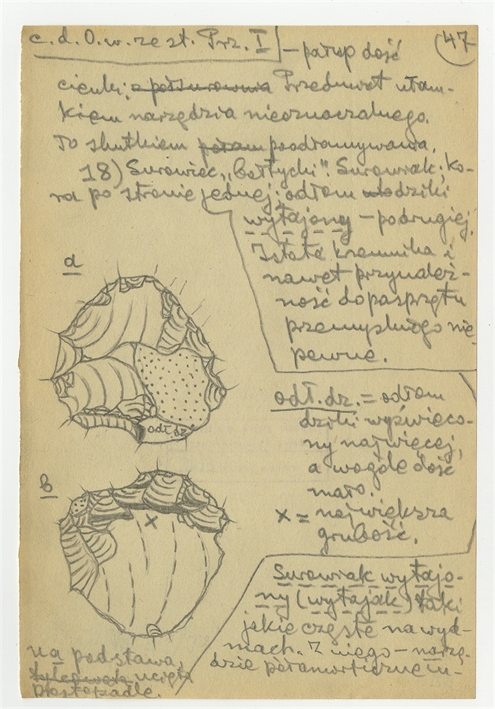 c. d. O. w. ze st. Prz. I — patrp dość
47
cienki; Przedmiot ułam-
kiem narzędzia nieoznaczalnego.
To skutkiem poodramywania.
18) Surowiec „bałtycki". Surowiak; ko-
ra po stronie jednej; odłam dziki
wytajony — po drugiej.
Istota krzemnika i
nawet przynależ-
ność do pasprzętu
przemysłnego nie
pewne.
a
odł. dz.
odł. dz. = odłam
dziki wyświeco-
ny najwięcej,
a wogóle dość
mało.
x = największa
grubość.
b
x
Surowiak wytajo-
ny (wytajak) taki
jakie częste na wyd-
mach. Z niego — narzę-
dzie
na podstawa,
ucięta